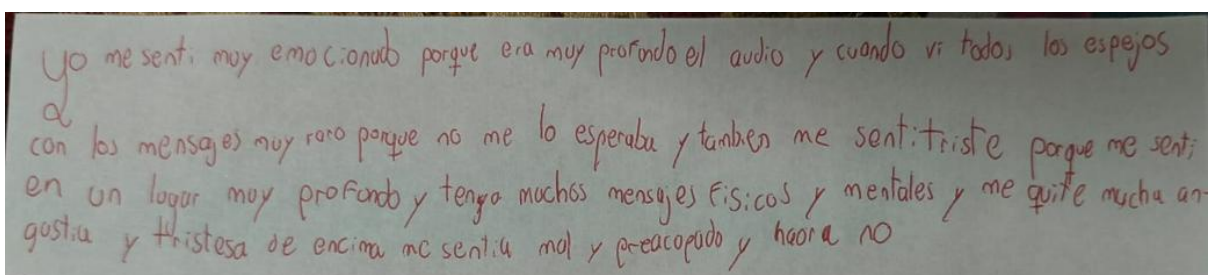 Yo me senti moy emocionado porque era muy profondo el audio y cuando vi todos los espejos
a
con los mensajes muy raro porque no me lo esperaba y tambien me senti triste porque me senti
en un logar moy profondo y tengo mochos mensajes fisicos y mentales y me quite mucha an-
gostia y thristesa de encima me sentia mal y preacopado y haora no